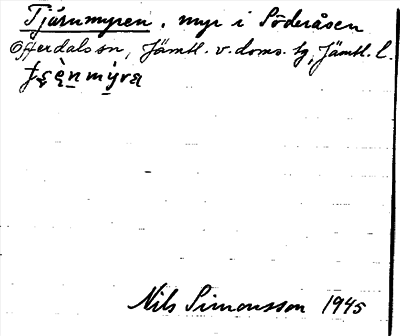 Tjärnmyren, myr i Söderåsen
Offerdals sn, Jämtl. v. doms. tg, Jämtl. l.
Nils Simonsson 1945